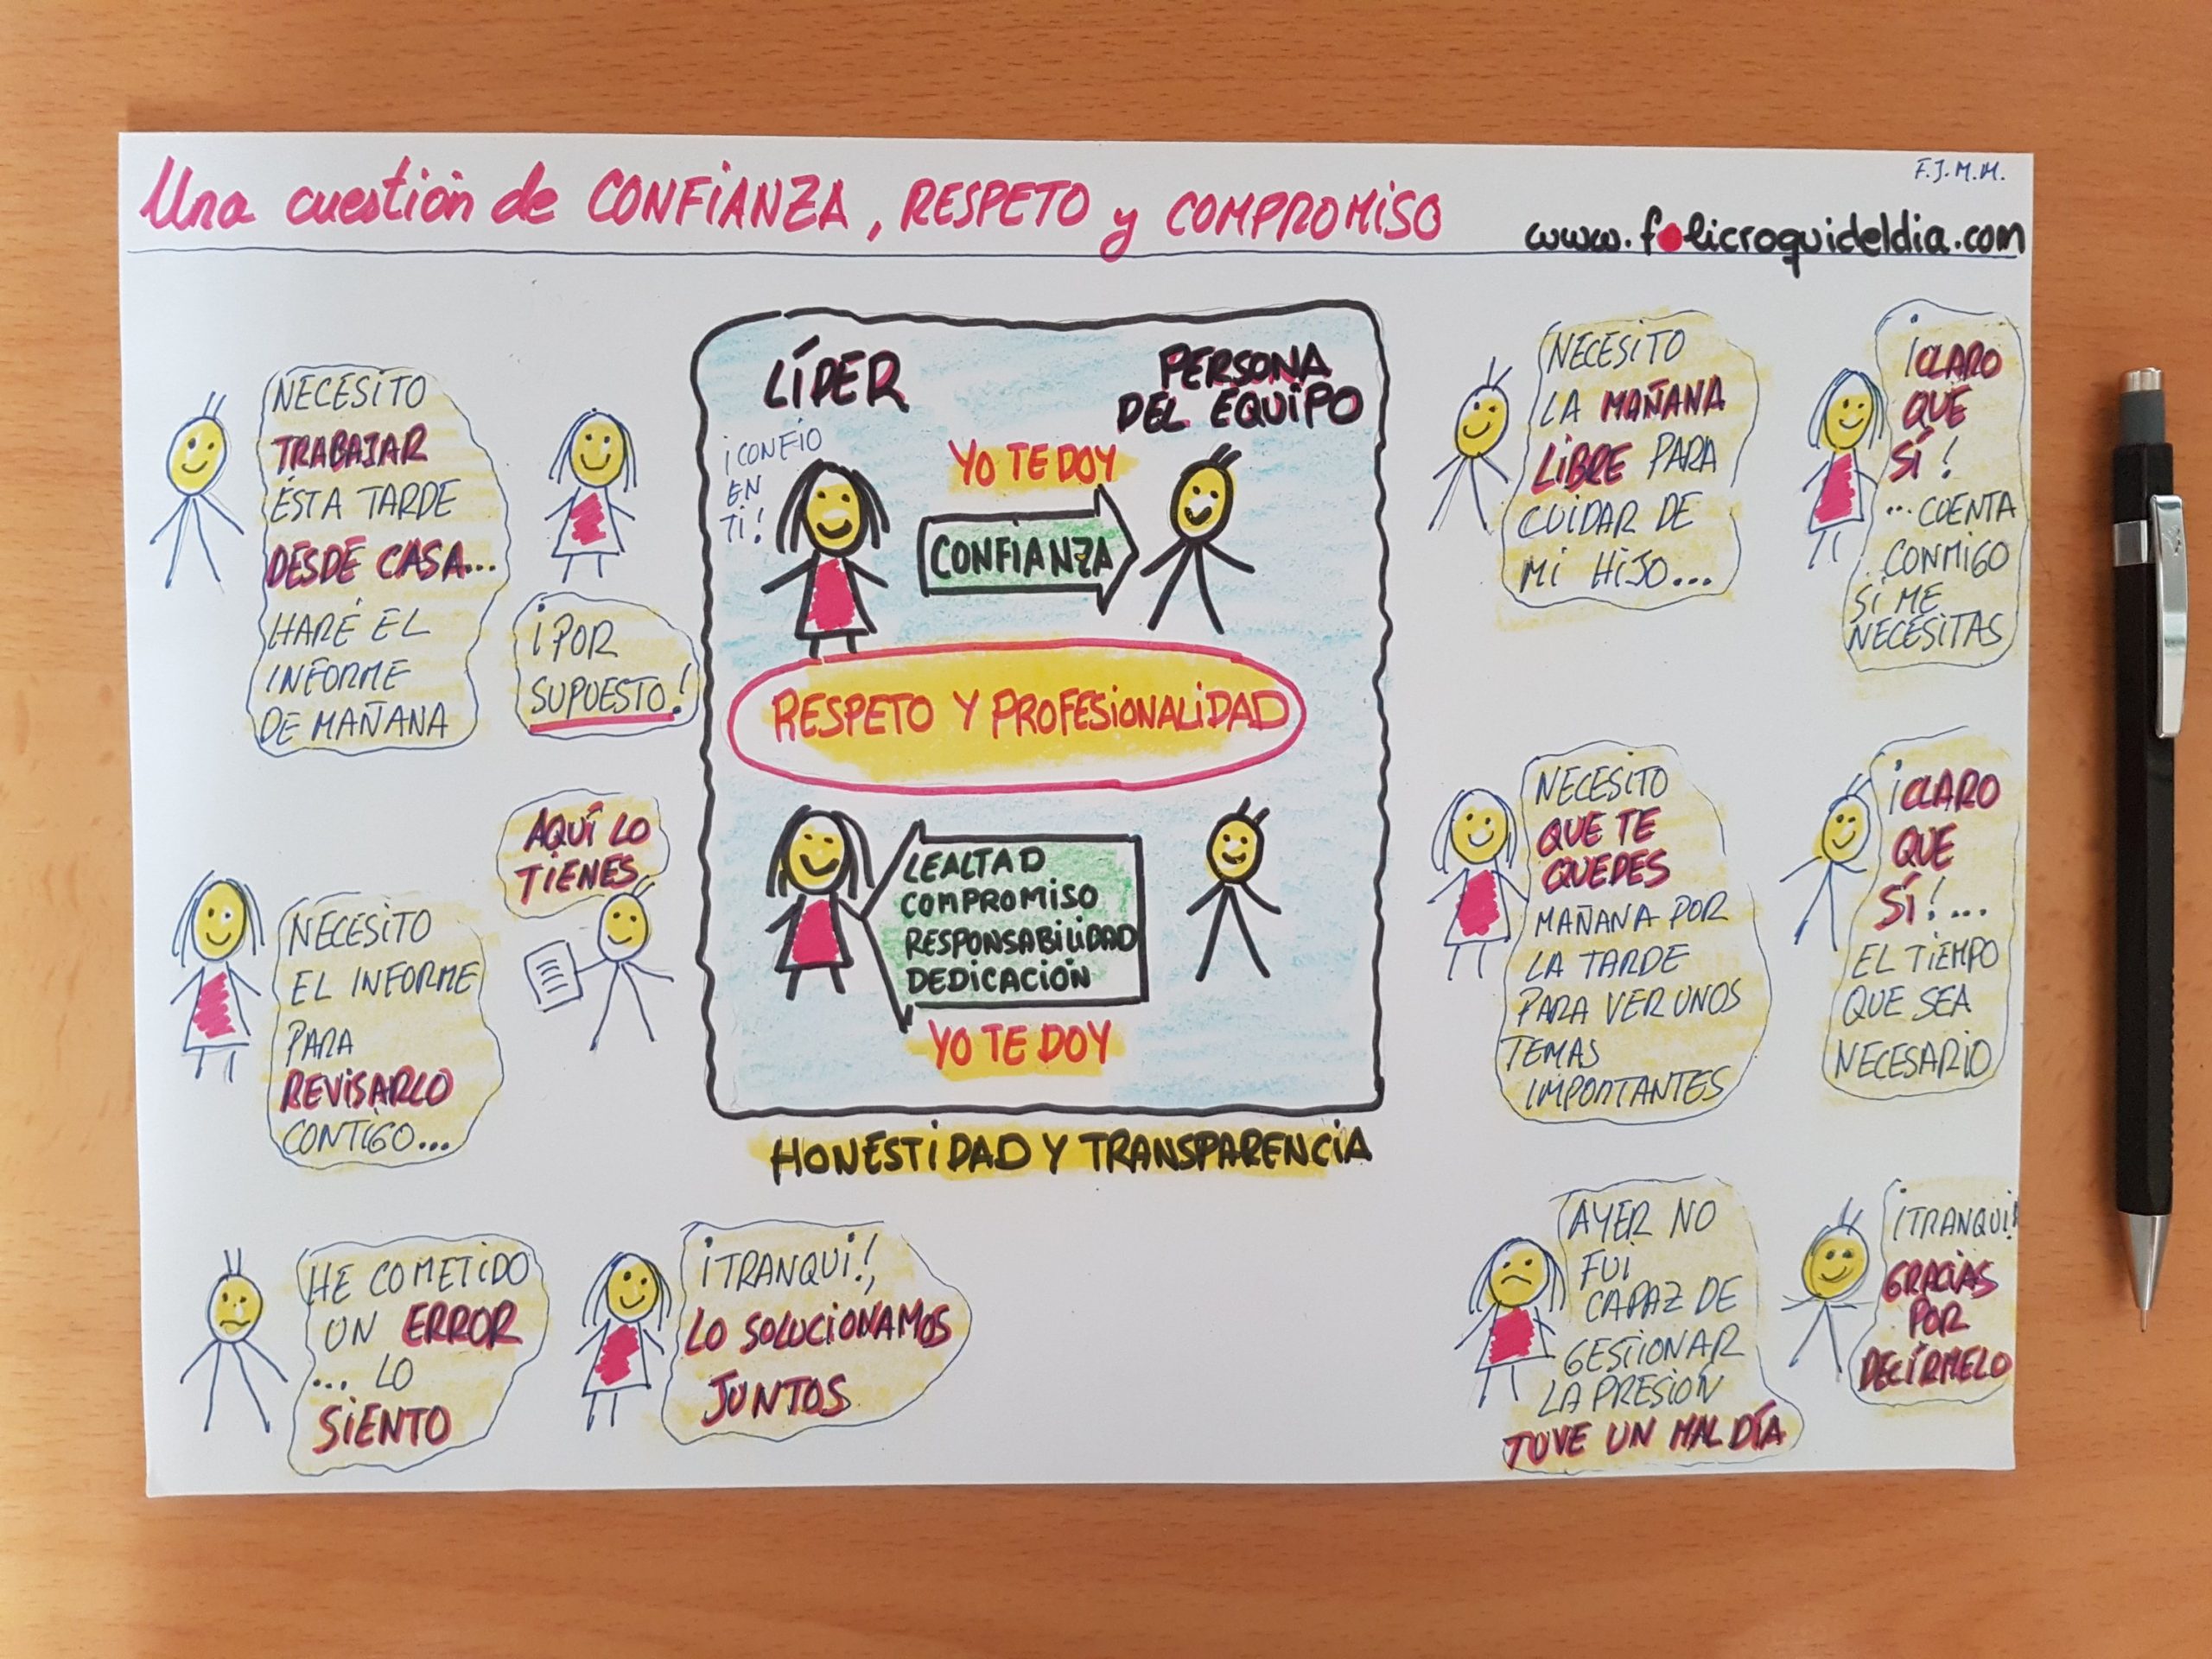 Una cuestión de CONFIANZA, RESPETO y COMPROMISO
F.J.M.M.
www.folicroquideldia.com
NECESITO
TRABAJAR
ÉSTA TARDE
DESDE CASA...
HARÉ EL
INFORME
DE MAÑANA
¡POR
SUPUESTO!
NECESITO
EL INFORME
PARA
REVISARLO
CONTIGO...
AQUÍ LO
TIENES
HE COMETIDO
UN ERROR
... LO
SIENTO
¡TRANQUI!,
LO SOLUCIONAMOS
JUNTOS
LÍDER
PERSONA
DEL EQUIPO
¡CONFÍO
EN
TI!
YO TE DOY
CONFIANZA
RESPETO Y PROFESIONALIDAD
LEALTAD
COMPROMISO
RESPONSABILIDAD
DEDICACIÓN
YO TE DOY
HONESTIDAD Y TRANSPARENCIA
NECESITO
LA MAÑANA
LIBRE PARA
CUIDAR DE
MI HIJO...
¡CLARO
QUE
SÍ!
... CUENTA
CONMIGO
SI ME
NECESITAS
NECESITO
QUE TE
QUEDES
MAÑANA POR
LA TARDE
PARA VER UNOS
TEMAS
IMPORTANTES
¡CLARO
QUE
SÍ!...
EL TIEMPO
QUE SEA
NECESARIO
AYER NO
FUI
CAPAZ DE
GESTIONAR
LA PRESIÓN
TUVE UN MAL DÍA
¡TRANQUI!
GRACIAS
POR
DECÍRMELO